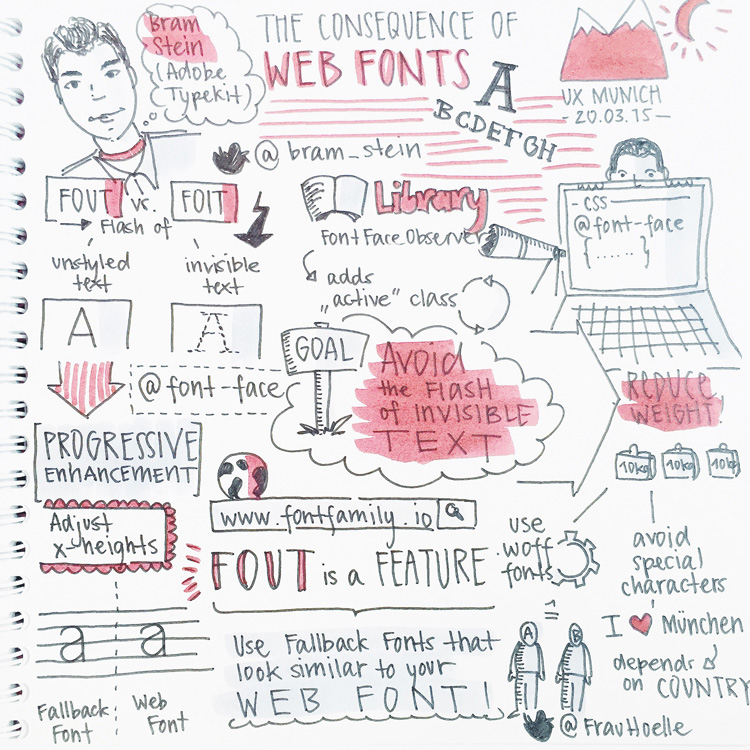 Bram
Stein
(Adobe
Typekit)
THE CONSEQUENCE OF
WEB FONTS
A
BCDEFGH
UX MUNICH
- 20.03.15 -
@bram_stein
FOUT vs. FOIT
Flash of
unstyled
text
invisible
text
A
A
Library
FontFaceObserver
adds
"active" class
CSS
@font-face
{ ...... }
@font-face
GOAL
Avoid
the FLASH
of INVISIBLE
TEXT
REDUCE
WEIGHT!
10kg 10kg 10kg
PROGRESSIVE
ENHANCEMENT
Adjust
x-heights
www.fontfamily.io
FOUT is a FEATURE
use
woff
fonts
avoid
special
characters
I ❤ München
depends
on COUNTRY
a a
Fallback
Font
Web
Font
Use Fallback Fonts that
look similar to your
WEB FONT!
=
A B
@FrauHoelle